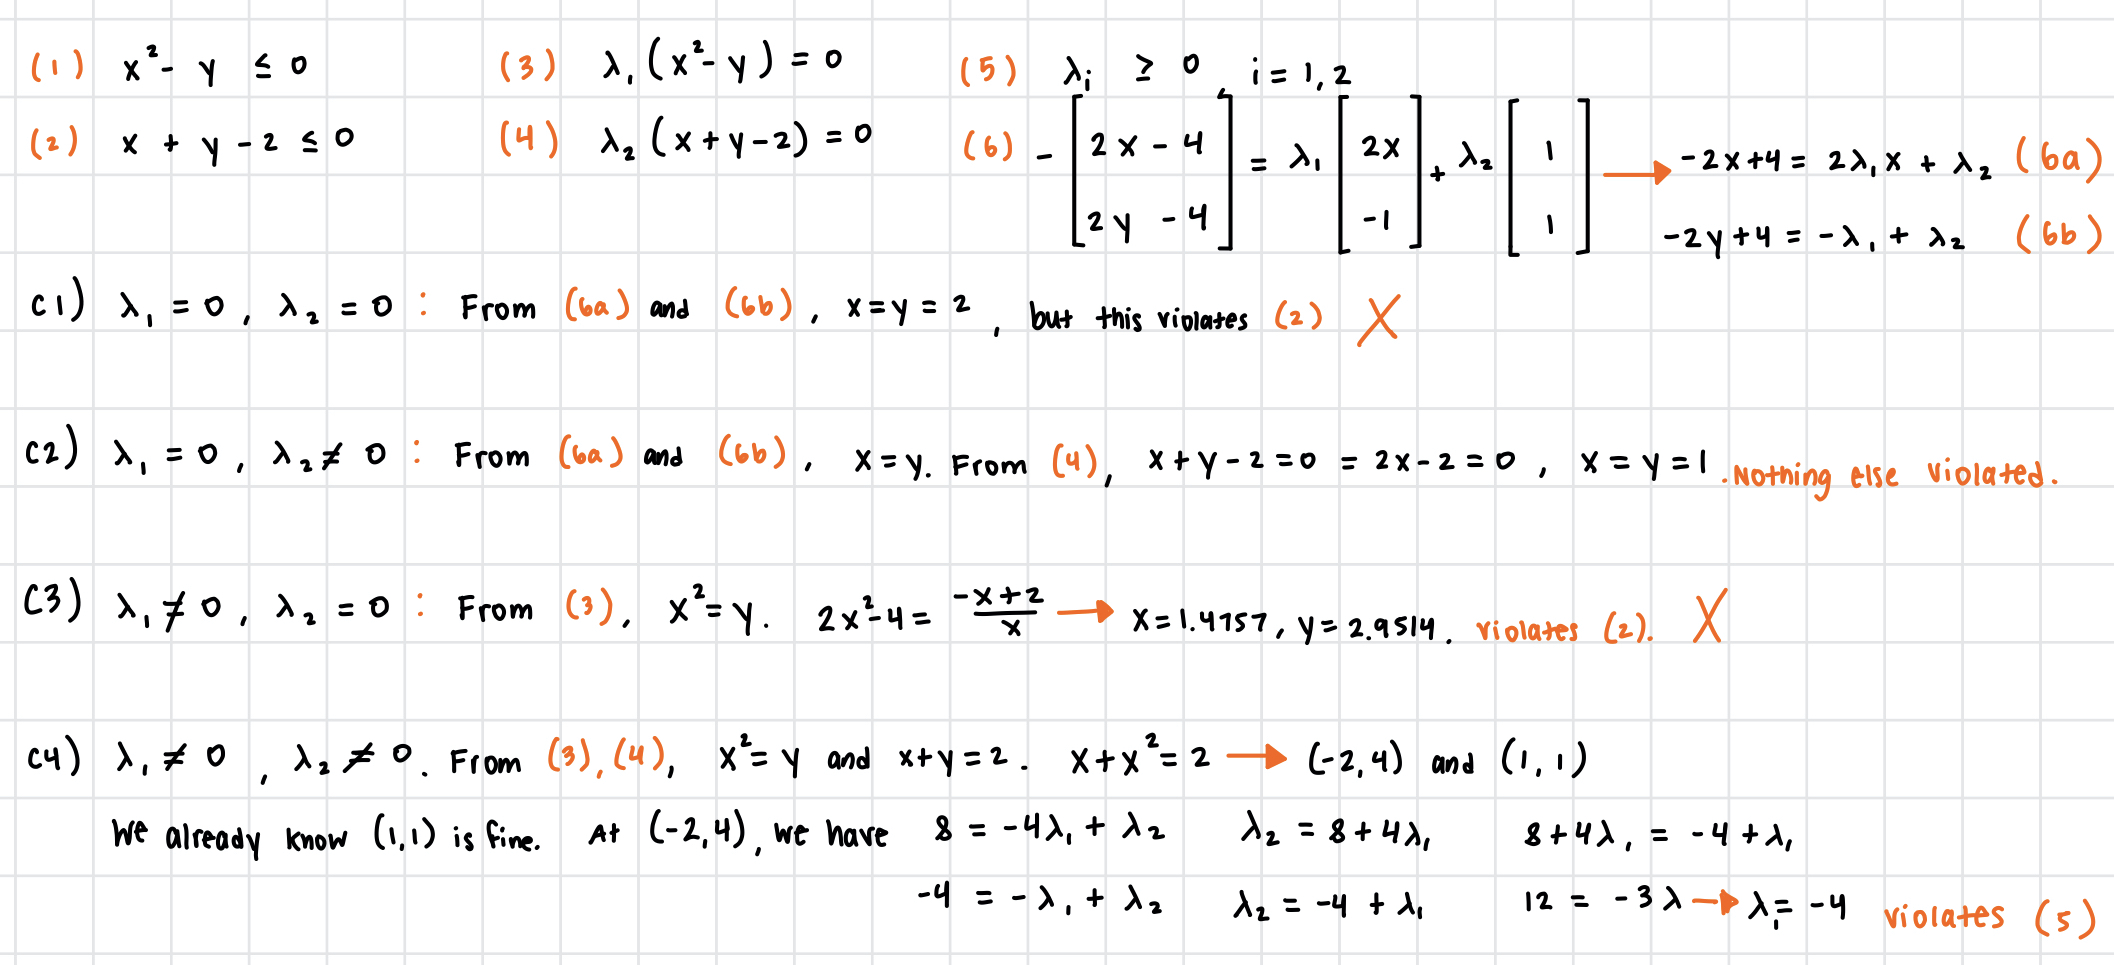 (1) x² - y ≤ 0 (3) λ₁(x² - y) = 0 (5) λᵢ ≥ 0, i = 1, 2
(2) x + y - 2 ≤ 0 (4) λ₂(x + y - 2) = 0 (6) -[2x - 4; 2y - 4] = λ₁[2x; -1] + λ₂[1; 1] → -2x + 4 = 2λ₁x + λ₂ (6a)
-2y + 4 = -λ₁ + λ₂ (6b)
C1) λ₁ = 0, λ₂ = 0 : From (6a) and (6b), x = y = 2, but this violates (2) X
C2) λ₁ = 0, λ₂ ≠ 0 : From (6a) and (6b), x = y. From (4), x + y - 2 = 0 = 2x - 2 = 0, x = y = 1. Nothing else violated.
C3) λ₁ ≠ 0, λ₂ = 0 : From (3), x² = y. 2x² - 4 = (-x + 2)/x → x = 1.4757, y = 2.9514. violates (2). X
C4) λ₁ ≠ 0, λ₂ ≠ 0. From (3), (4), x² = y and x + y = 2. x + x² = 2 → (-2, 4) and (1, 1)
We already know (1, 1) is fine. At (-2, 4), we have 8 = -4λ₁ + λ₂ λ₂ = 8 + 4λ₁ 8 + 4λ₁ = -4 + λ₁
-4 = -λ₁ + λ₂ λ₂ = -4 + λ₁ 12 = -3λ → λ₁ = -4 violates (5)